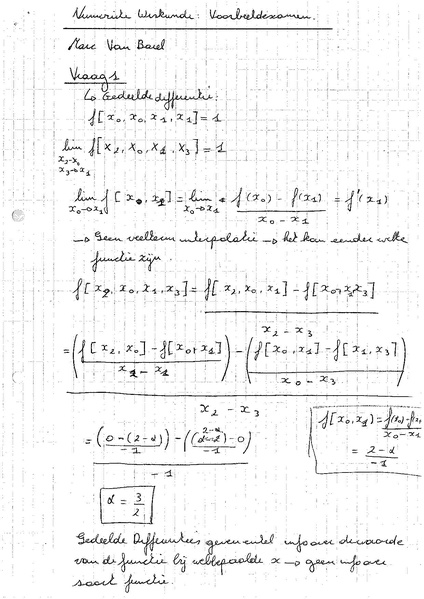 Numerieke Wiskunde: Voorbeeldexamen.
Marc Van Barel
Vraag 1
↳ Gedeelde differentie:
f[x₀, x₀, x₁, x₁] = 1
lim f[x₂, x₀, x₁, x₃] = 1
x₂→x₀
x₃→x₁
lim f[x₀, x₁] = lim f(x₀) - f(x₁) / x₀ - x₁ = f'(x₁)
x₀→x₁ x₀→x₁
→ Geen veelterm interpolatie → het kan eender welke
functie zijn.
f[x₂, x₀, x₁, x₃] = f[x₂, x₀, x₁] - f[x₀, x₁, x₃]
x₂ - x₃
= (f[x₂, x₀] - f[x₀, x₁] / x₂ - x₁) - (f[x₀, x₁] - f[x₁, x₃] / x₀ - x₃)
x₂ - x₃
f[x₀, x₁] = f(x₀) - f(x₁) / x₀ - x₁
= 2 - α / -1
= (0 - (2 - α) / -1) - ((2 - α) - 0 / -1)
-1
α = 3/2
Gedeelde Differenties geven enkel info over de waarde
van de functie bij welbepaalde x → geen info over
soort functie.